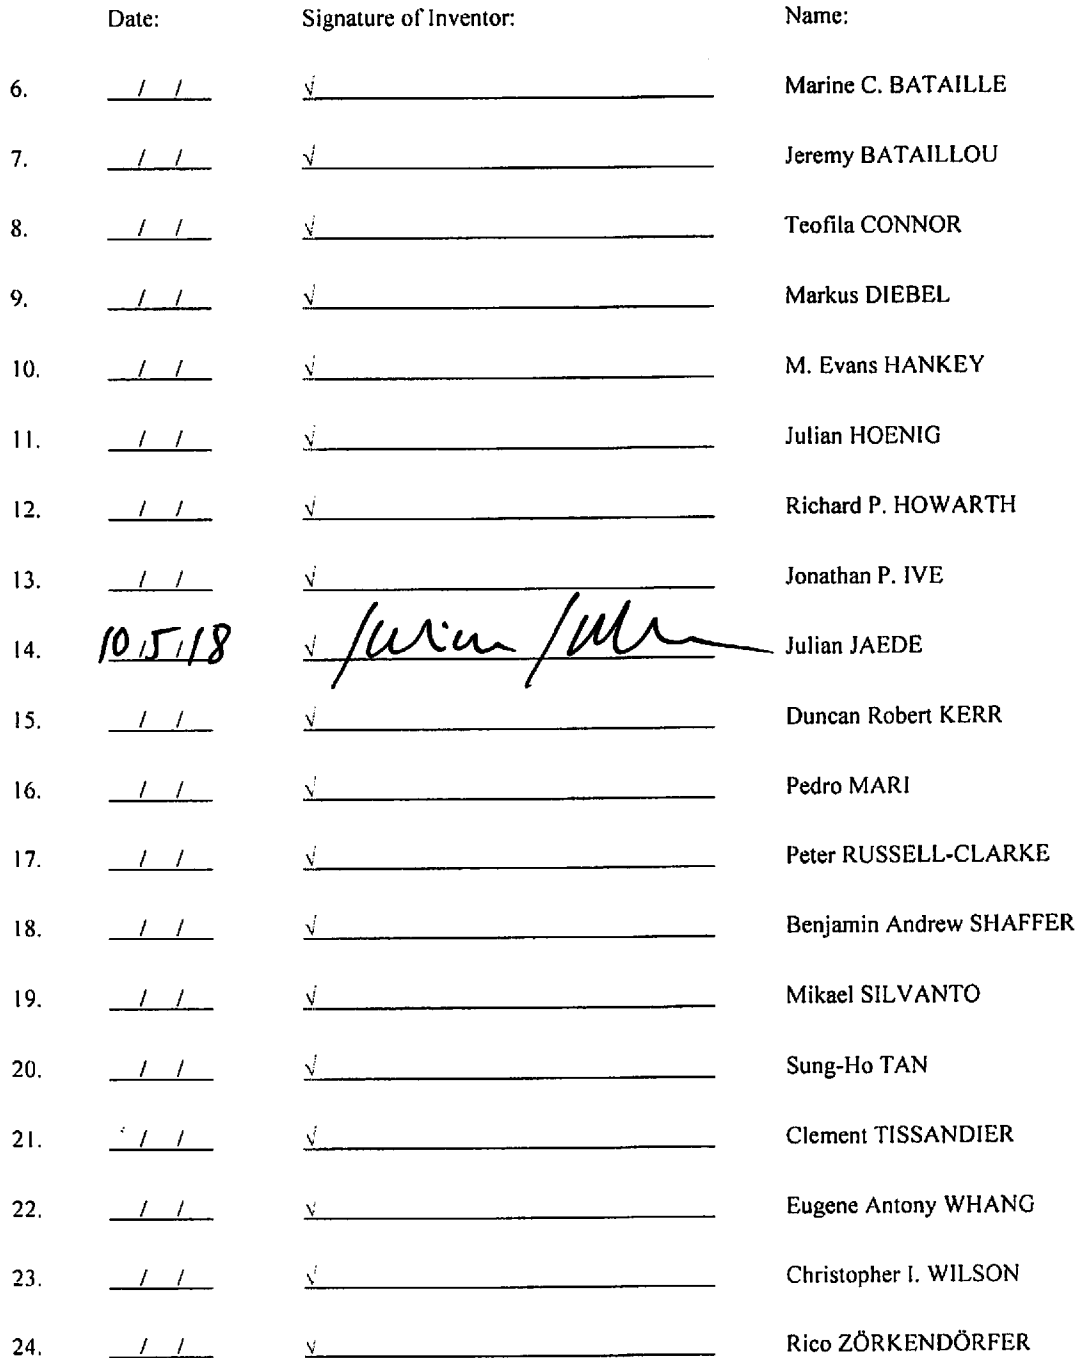 Date: Signature of Inventor: Name:
6. / / √ Marine C. BATAILLE
7. / / √ Jeremy BATAILLOU
8. / / √ Teofila CONNOR
9. / / √ Markus DIEBEL
10. / / √ M. Evans HANKEY
11. / / √ Julian HOENIG
12. / / √ Richard P. HOWARTH
13. / / √ Jonathan P. IVE
14. 10/5/18 √ Julian JAEDE
15. / / √ Duncan Robert KERR
16. / / √ Pedro MARI
17. / / √ Peter RUSSELL-CLARKE
18. / / √ Benjamin Andrew SHAFFER
19. / / √ Mikael SILVANTO
20. / / √ Sung-Ho TAN
21. / / √ Clement TISSANDIER
22. / / √ Eugene Antony WHANG
23. / / √ Christopher I. WILSON
24. / / √ Rico ZÖRKENDÖRFER